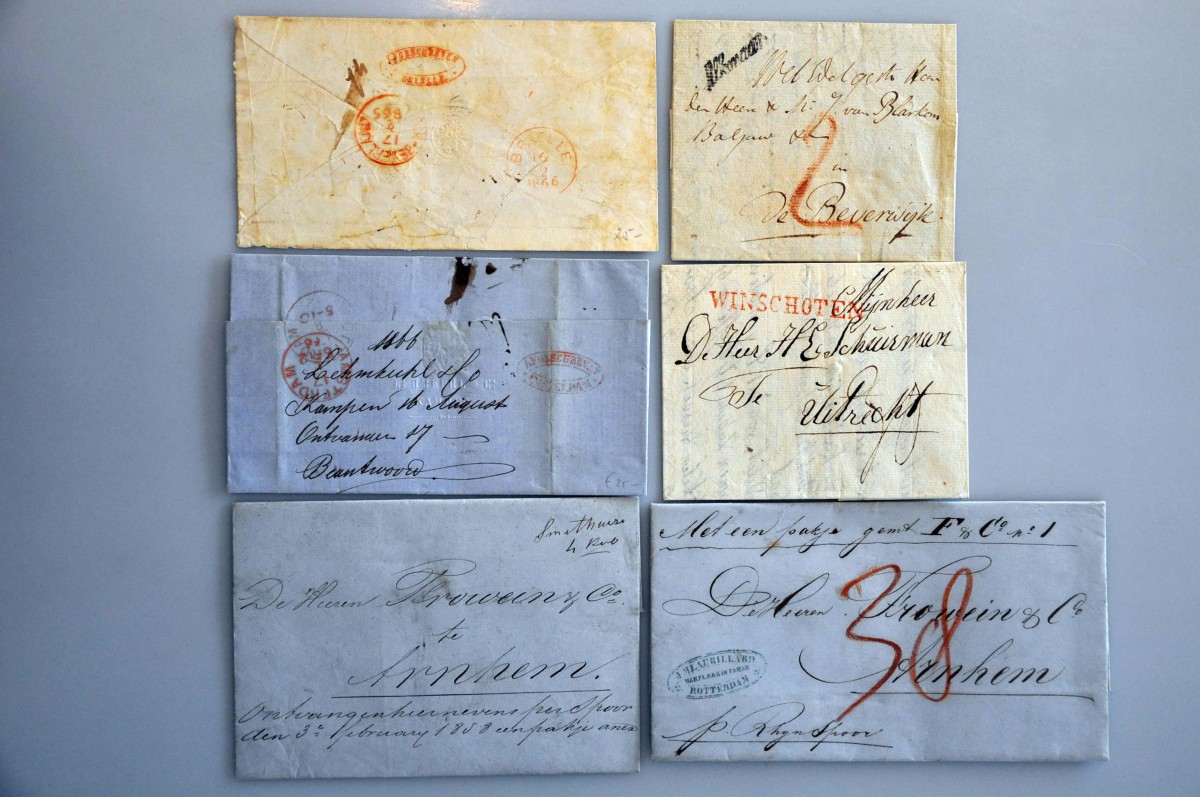 BRIELLE
17
1866
25-
Alkmaar
Wel Edelgestr Heer
den Heer & Mr. J. van Blarkom
Baljuw &c
2
in
De Beverwijk
1866
Lehmkuhl & Co
Kampen 16 August
Ontvangen 17
Beantwoord
AMSTERDAM
17
€ 25-
WINSCHOTEN
Mijnheer
De Heer H E Schuirman
Te
Uitrecht
Smithuis
De Heeren Frowein & Co.
te
Arnhem.
Ontvangen hiernevens per Spoor
den 3e February 1858 een pakje
Met een pakje gemt F & Co no 1
De Heeren Frowein & Co
38
Arnhem
ROTTERDAM
p Rhyn Spoor